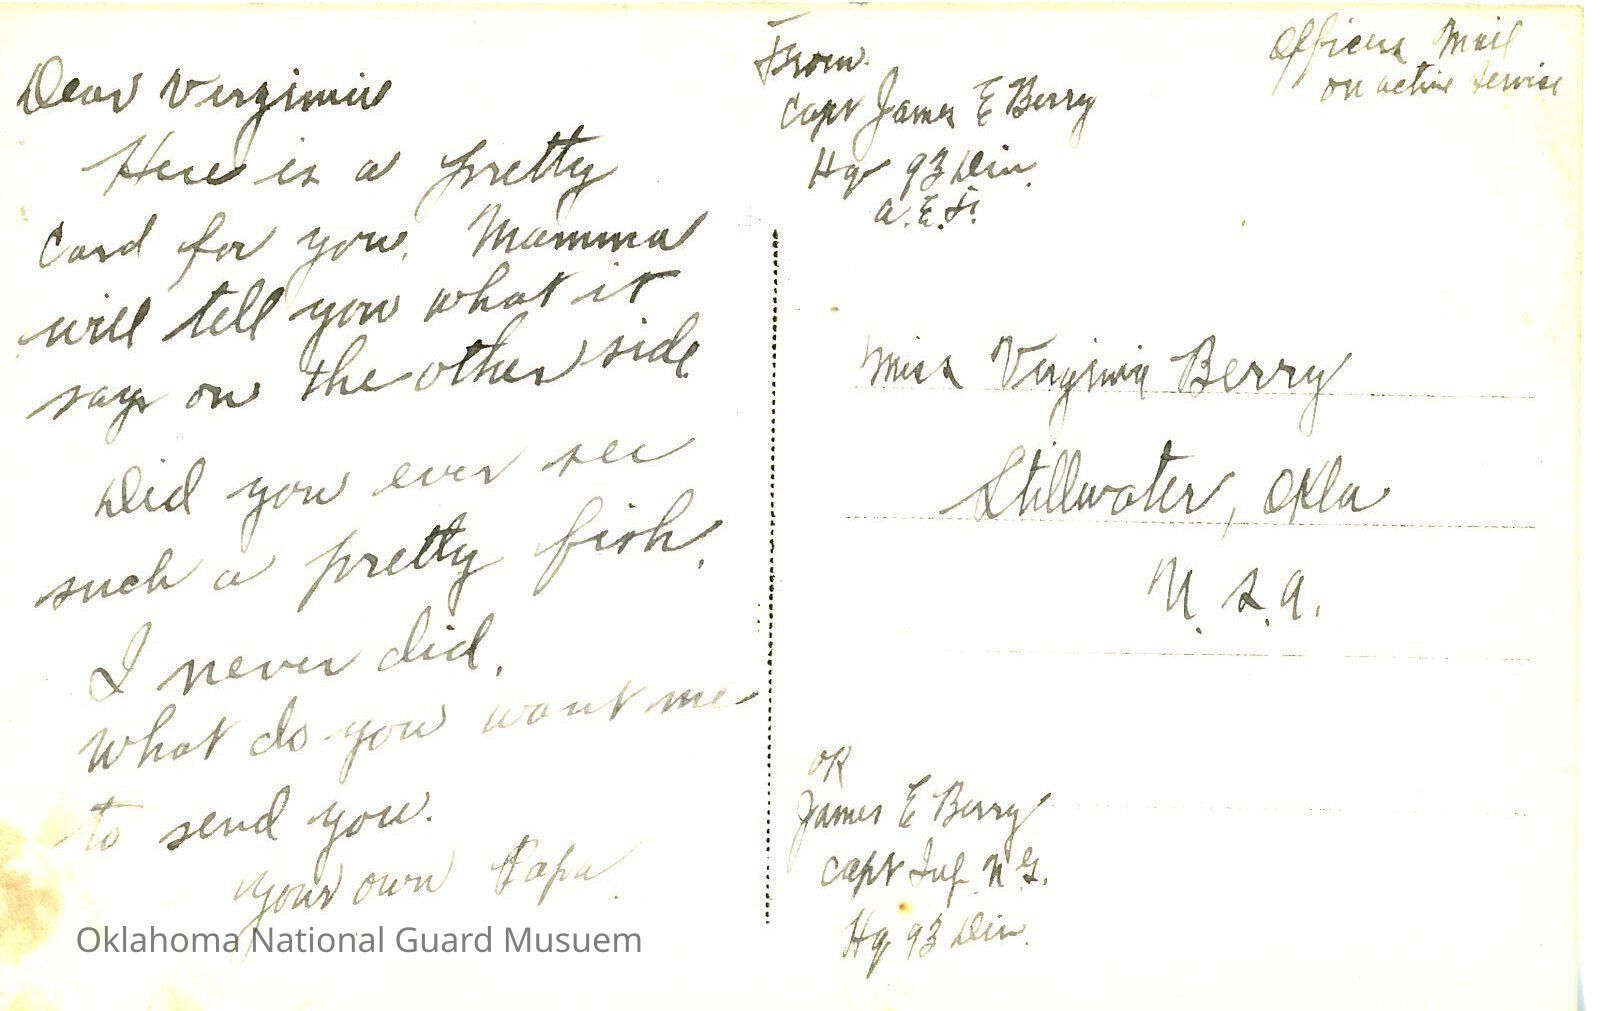 Dear Virginia
Here is a pretty
Card for you. Mamma
will tell you what it
says on the other side.
Did you ever see
such a pretty fish.
I never did.
What do you want me
to send you.
Your own Papa
Oklahoma National Guard Musuem
From
Capt James E Berry
Hq 93 Div.
A.E.F.
Officers Mail
on active service
Miss Virginia Berry
Stillwater, Okla
U.S.A.
OK
James E Berry
Capt Inf. N.G.
Hq 93 Div.